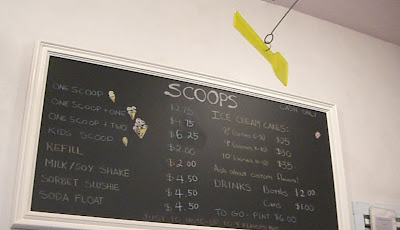 SCOOPS
CASH ONLY
ONE SCOOP $2.75
ONE SCOOP + ONE $4.75
ONE SCOOP + TWO $6.25
KIDS SCOOP $2.00
REFILL $2.00
MILK/SOY SHAKE $4.50
SORBET SLUSHIE $4.50
SODA FLOAT $4.50
ICE CREAM CAKES:
$25
$30
$35
Ask about custom flavors!
DRINKS - Bottles $2.00
Cans $1.00
TO GO - PINT $6.00